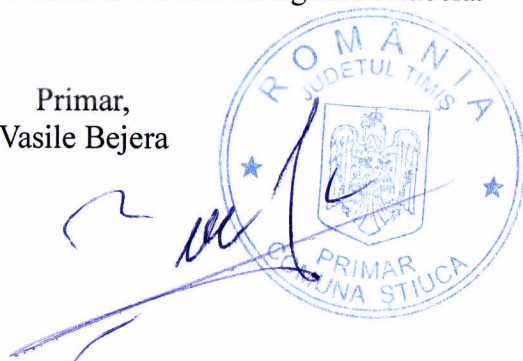 Primar,
Vasile Bejera
ROMÂNIA
JUDETUL TIMIȘ
PRIMAR
COMUNA ȘTIUCA